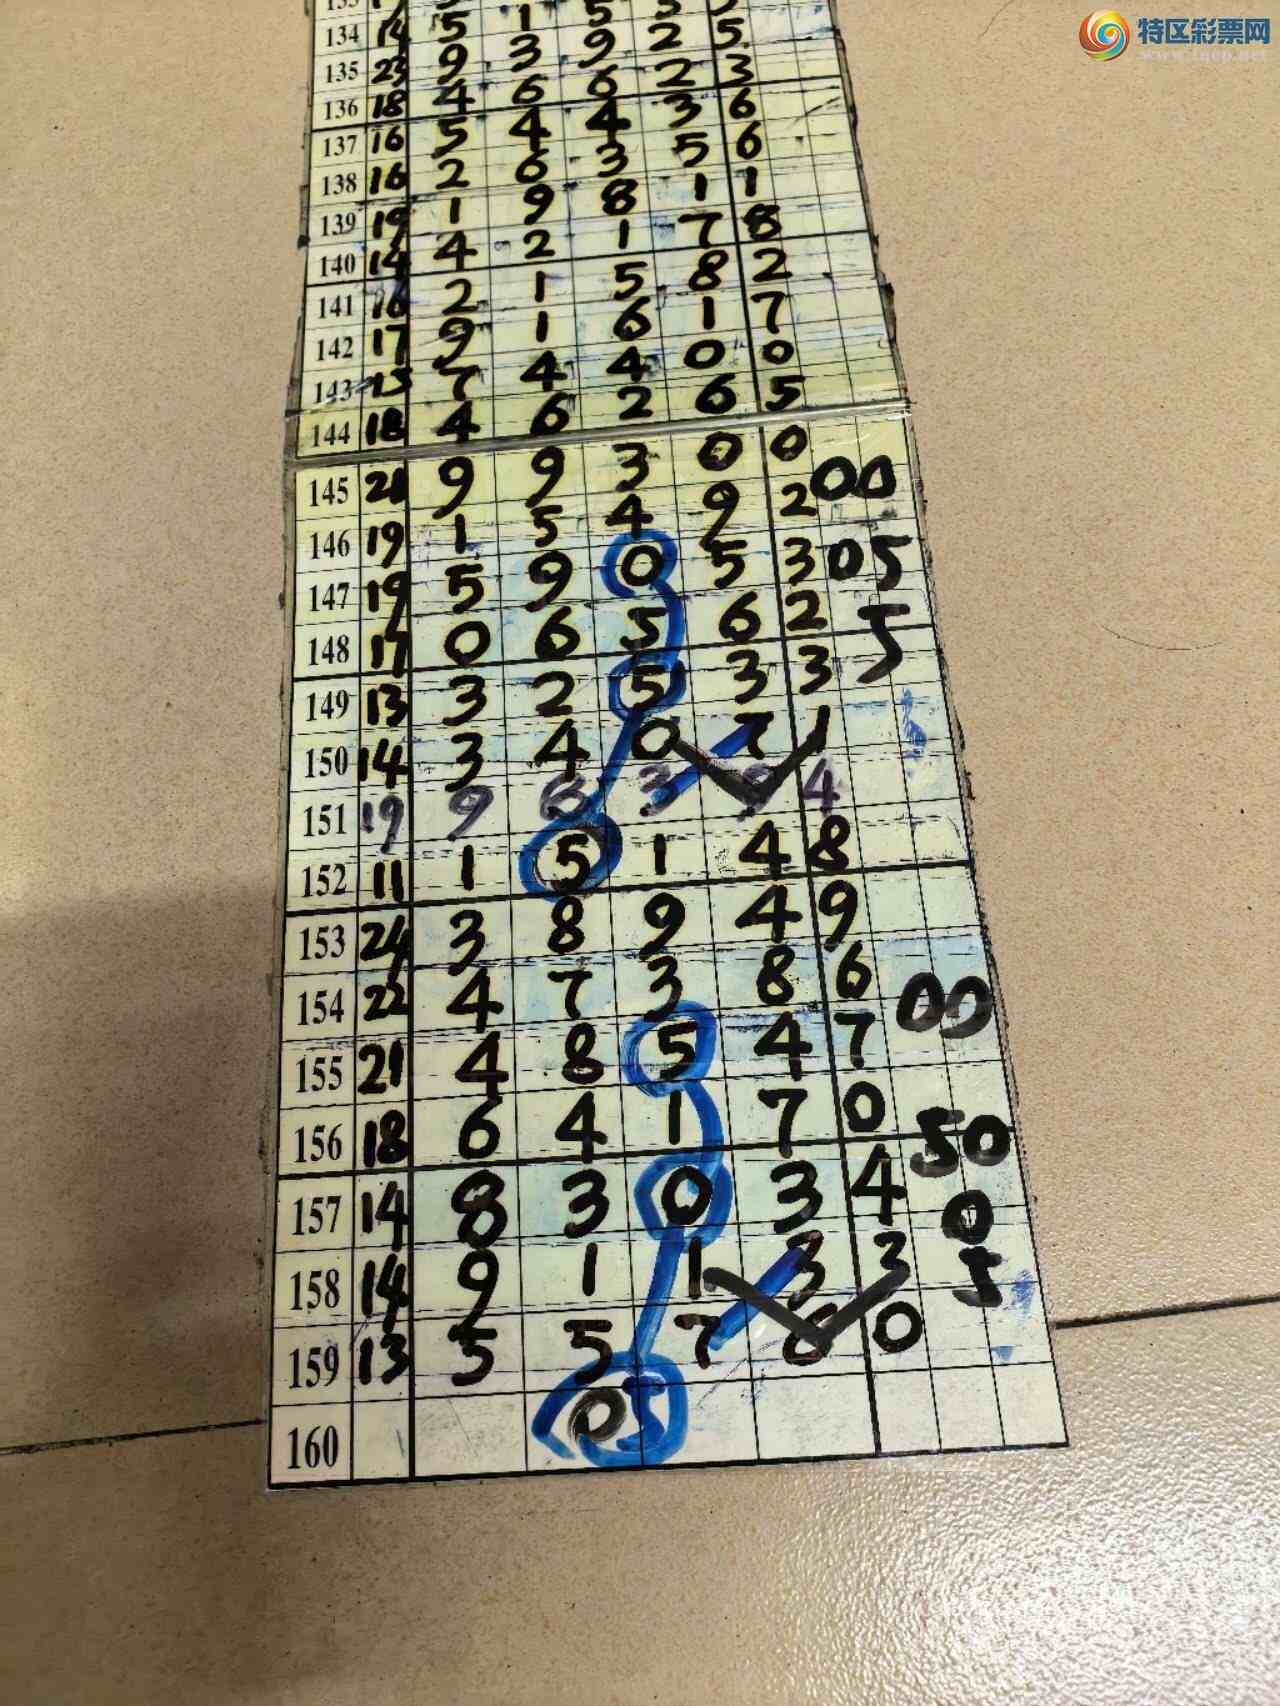 特区彩票网
134 14 5 1 5 3
135 23 9 3 9 2 5
136 18 4 6 6 2 3
137 16 5 4 4 3 6
138 16 2 6 3 5 6
139 19 1 9 8 1 1
140 14 4 2 1 7 8
141 16 2 1 5 8 2
142 17 9 1 6 1 7
143 15 7 4 4 0 0
144 18 4 6 2 6 5
145 21 9 9 3 0 0 00
146 19 1 5 4 9 2
147 19 5 9 0 5 3 05
148 17 0 6 5 6 2 5
149 13 3 2 5 3 3
150 14 3 4 0 7 1
151 19 9 3 9 4
152 11 1 5 1 4 8
153 24 3 8 9 4 9
154 22 4 7 3 8 6 00
155 21 4 8 5 4 7
156 18 6 4 1 7 0 50
157 14 8 3 0 3 4 0
158 14 9 1 1 3 3 5
159 13 5 5 7 8 0
160 0 5